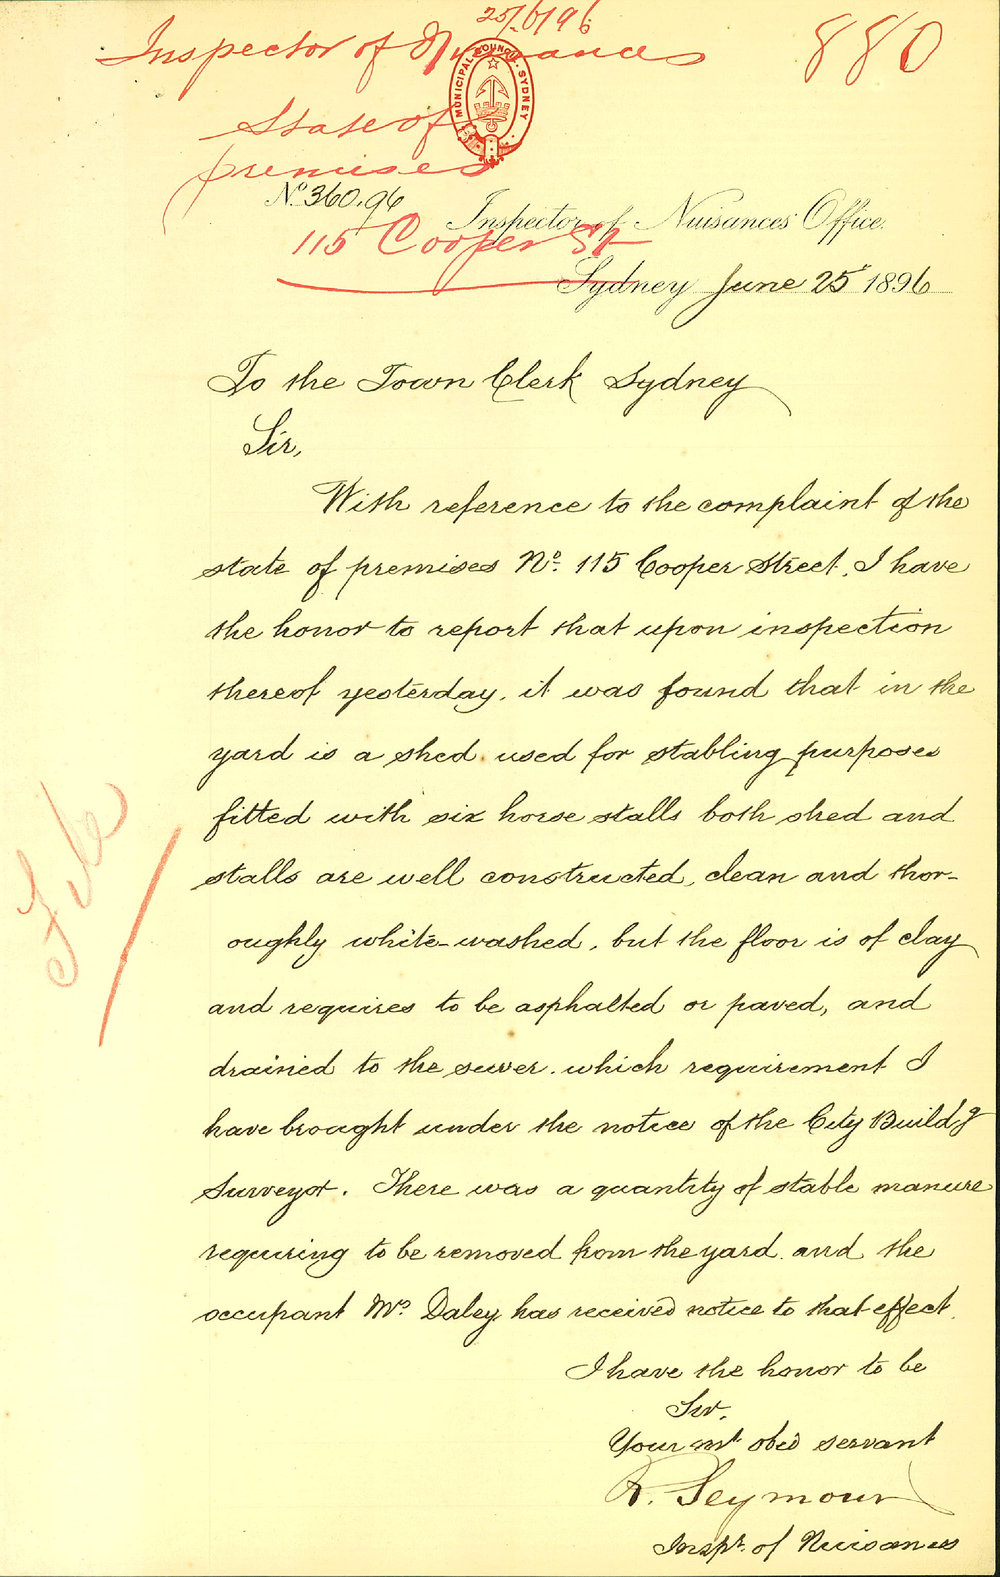 25/6/96
Inspector of Nuisances
880
MUNICIPAL COUNCIL SYDNEY
State of
premises
No. 360.96
Inspector of Nuisances' Office.
115 Cooper St
Sydney June 25 1896
To the Town Clerk Sydney
Sir,
With reference to the complaint of the
state of premises No. 115 Cooper Street, I have
the honor to report that upon inspection
thereof yesterday, it was found that in the
yard is a shed used for stabling purposes
fitted with six horse stalls both shed and
stalls are well constructed, clean and thor-
oughly white-washed, but the floor is of clay
and requires to be asphalted or paved, and
drained to the sewer. which requirement I
have brought under the notice of the City Buildg
Surveyor. There was a quantity of stable manure
requiring to be removed from the yard and the
occupant Mrs. Daley has received notice to that effect.
File
I have the honor to be
Sir,
Your mt obed servant
R. Seymour
Inspr. of Nuisances